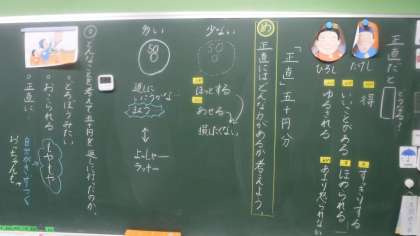 正直だと
どうなる?
得
いいことがある
ゆるされる
すっきりする
ほめられる
あまり怒られない
たけし
ひろし
「正直」五十円分
め
正直にはどんな力があるか考えよう。
少ない
50
ほっとする
あせる
損したくない
多い
50
返しに
いこうかな…
まよう
よっしゃー
ラッキー
どんなことを考えて五十円を返しに行ったのか。
どろぼうみたい
おこられる
正直に
もやもや
自分がきずつく
おっちゃんも